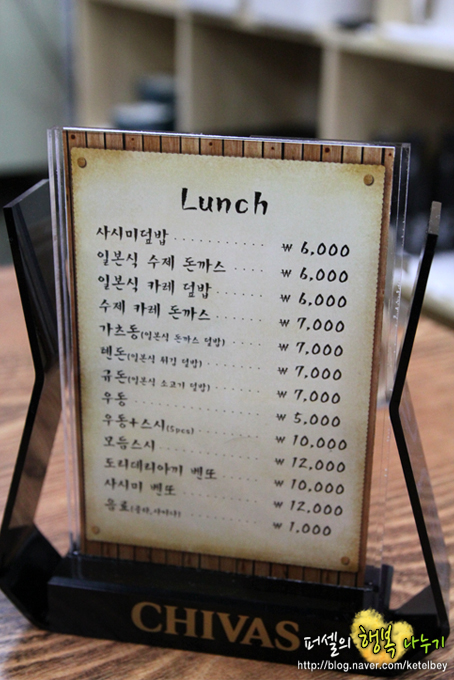 Lunch
사시미덮밥 ₩ 6,000
일본식 수제 돈까스 ₩ 6,000
일본식 카레 덮밥 ₩ 6,000
수제 카레 돈까스 ₩ 7,000
가츠동(일본식 돈까스 덮밥) ₩ 7,000
텐돈(일본식 튀김 덮밥) ₩ 7,000
규돈(일본식 소고기 덮밥) ₩ 7,000
우동 ₩ 5,000
우동+스시(5pcs) ₩ 10,000
모듬스시 ₩ 12,000
도리데리야끼 벤또 ₩ 10,000
사시미 벤또 ₩ 12,000
음료(콜라,사이다) ₩ 1,000
CHIVAS
퍼셀의 행복 나누기
http://blog.naver.com/ketelbey